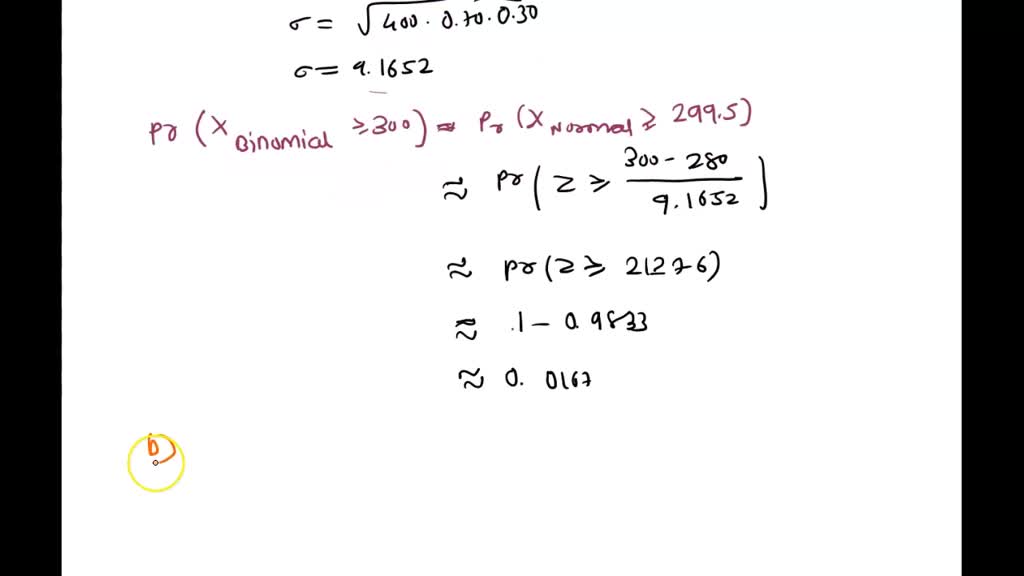 σ = √400 · 0.70 · 0.30
σ = 9.1652
Pr (X Binomial ≥ 300) ≈ Pr (X Normal ≥ 299.5)
≈ Pr ( Z ≥ 300 - 280 / 9.1652 )
≈ Pr (Z ≥ 2.1276)
≈ .1 - 0.9833
≈ 0.0167
b)